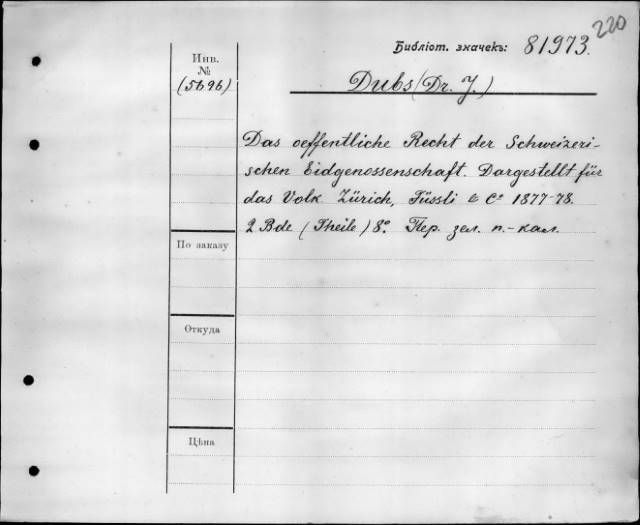 220
Библіот. значекъ: 81973.
Инв. №
(5696)
Dubs (Dr. J.)
Das oeffentliche Recht der Schweizeri-
schen Eidgenossenschaft. Dargestellt für
das Volk Zürich, Füssli & Cº 1877-78.
2 Bde (Theile) 8º. Пер. зел. п.-кал.
По заказу
Откуда
Цѣна